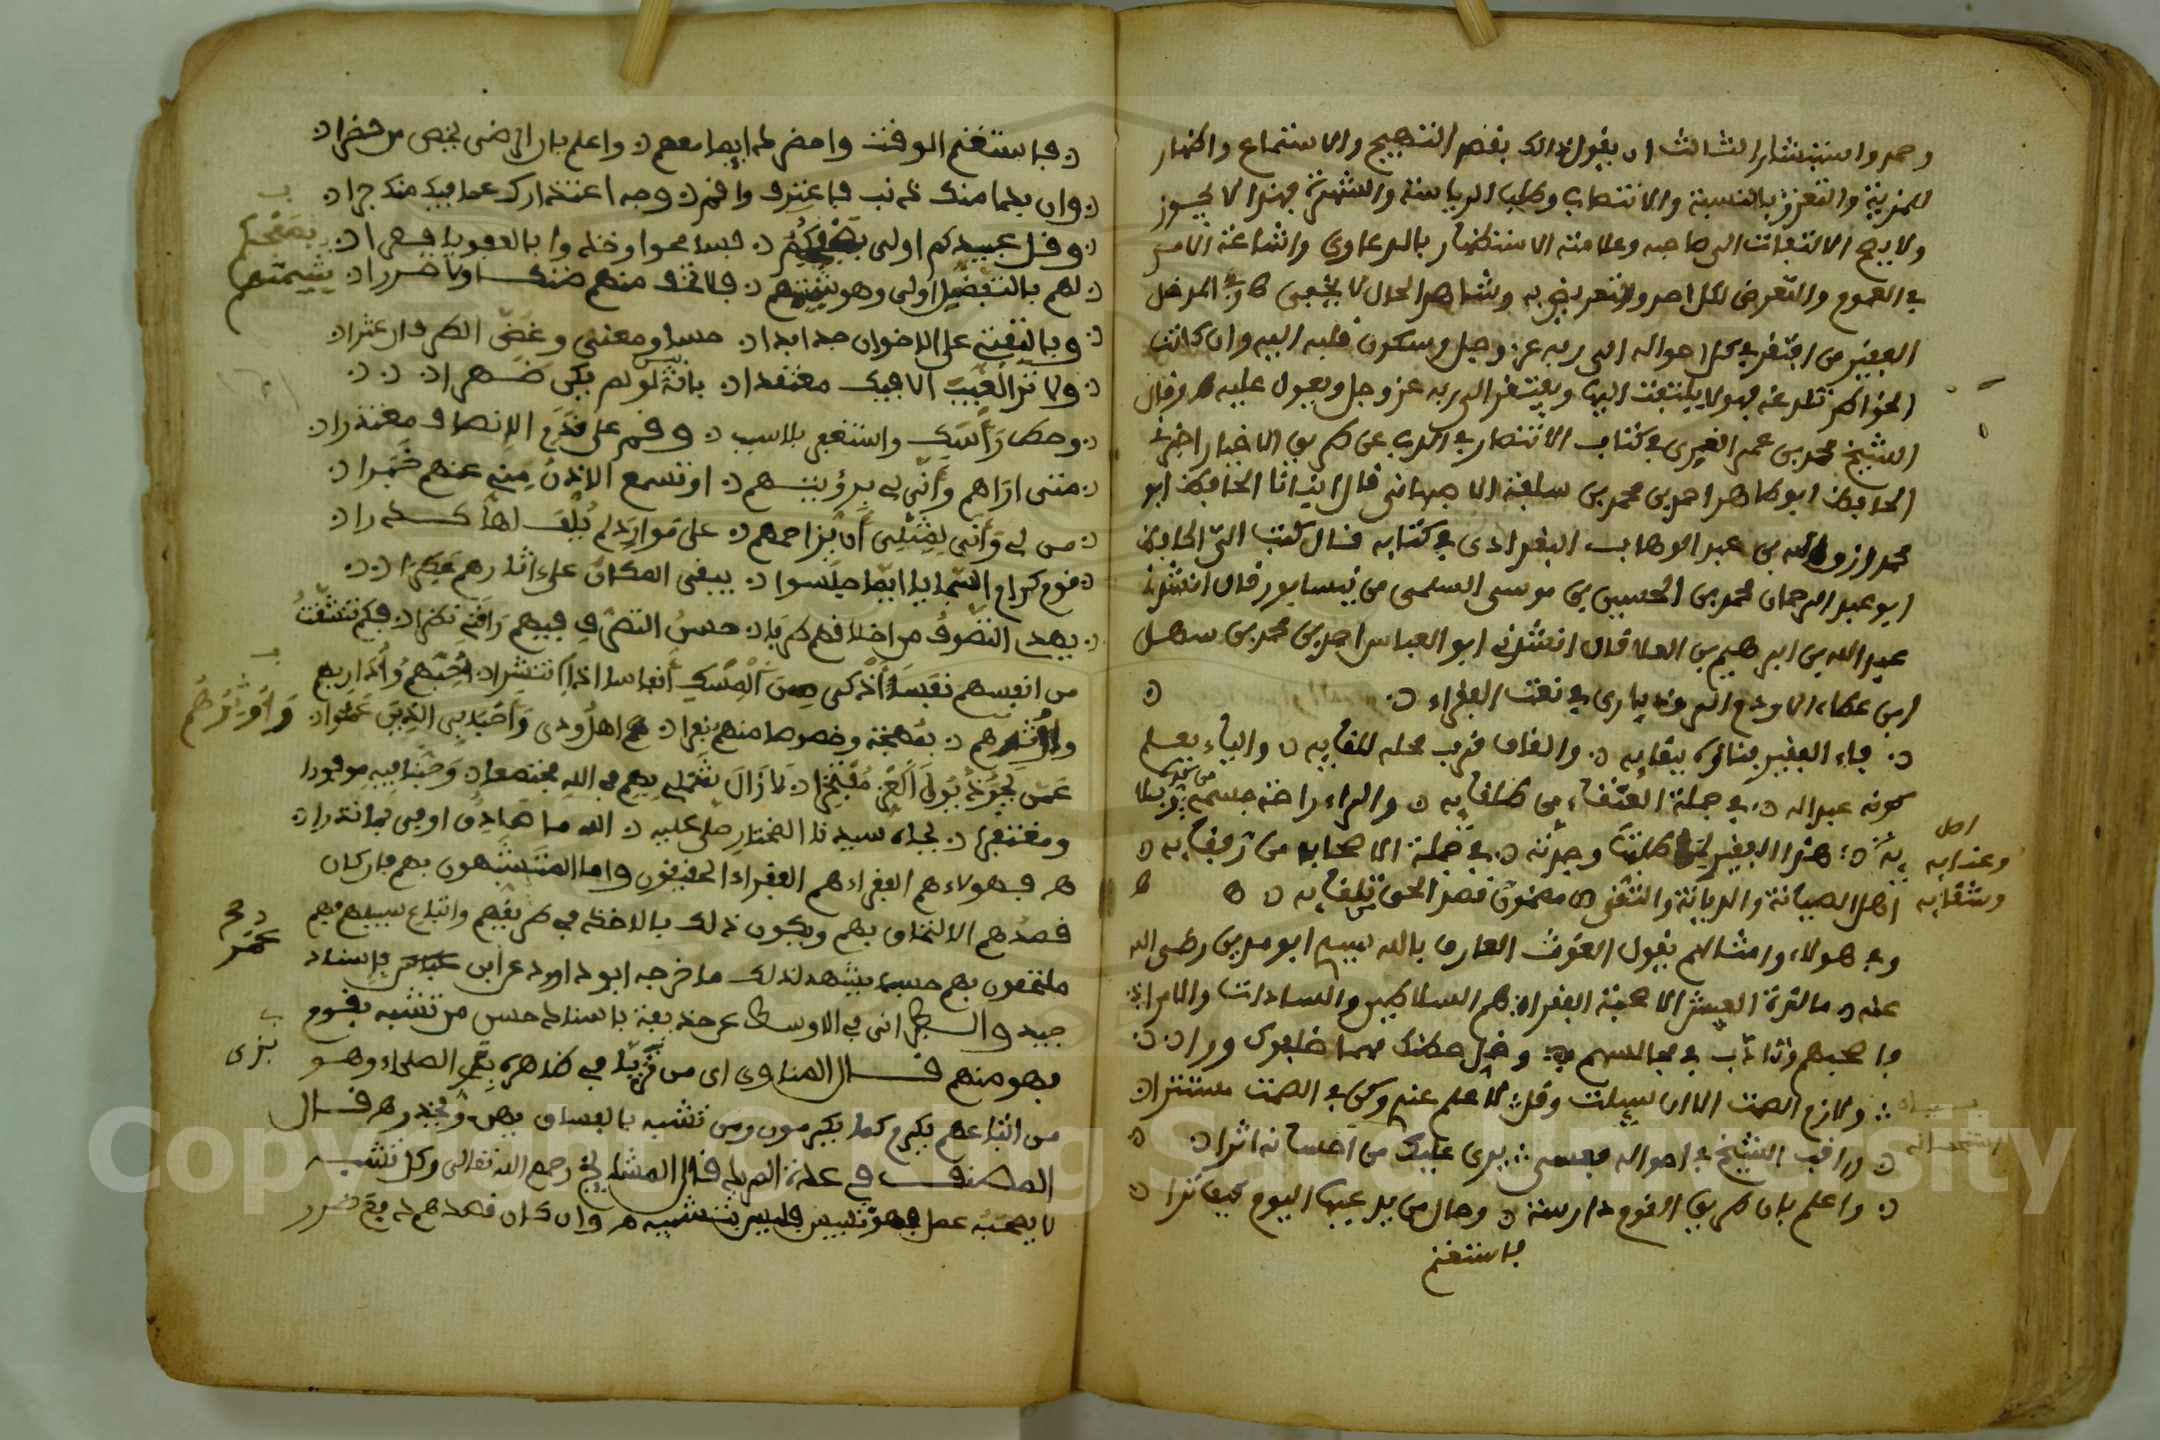 وحمد واستبشار الثالث ان يقول ذالك بقصد التبجيح والاستتباع واظهار
للمزية والتعزز بالنسبة والانتصار وطلب الرياسة والشهرة فهذا لا يجوز
ولا يبيح الالتفات الى صاحبه وعلامته الاستظهار بالدعاوي واشاعة الامر
في العموم والتعرض لكل احد والتعريض به وشاهد الحال لا يخفى قال في المدخل
الفقير من افتقر في كل احواله الى ربه عز وجل وسكون قلبه اليه وان كانت
الخواطر تطرقه فهو لا يلتفت اليها ويفتقر الى ربه عز وجل ويعول عليه ه وقال
الشيخ محمد بن عمر الغمري في كتاب الانتصار في الذب عن طريق الاخيار اخبرنا
الحافظ ابو طاهر احمد بن محمد بن سلفة الاصبهاني قال انبانا الحافظ ابو
محمد رزق الله بن عبد الوهاب البغدادي في كتابه قال كتب الي الحافظ
ابو عبد الرحمان محمد بن الحسين بن موسى السلمي من نيسابور قال انشدنا
عبد الله بن ابرهيم بن العلا قال انشدني ابو العباس احمد بن محمد بن سهل
ابن عطاء الاودي الروذباري في نعت الفقراء
فاء الفقير فناؤه ببقايه والقاف قرب محله للقايه والياء يعلم
كونه عبدا له في جملة العتقاء من طلقايه والراء راحة جسمه من كده وبلا
يه هذا الفقير متى طلبت وجدته في جملة الاصحاب من رفقايه
اصل
وعنايه
وشقايه
اهل الصيانة والديانة والتقى مضمون قصد الحق تلقايه
وفي هولاء وامثالهم يقول الغوث العارف بالله سيدي ابو مدين رضي الله
عنه مالذة العيش الا صحبة الفقرا هم السلاطين والسادات والامرا
فاصحبهم وتادب في مجالسهم وخل حظك مهما خلفوك ورا
ولازم الصمت الا ان سيلت وقل لا علم عندي وكن في الصمت مستترا
وراقب الشيخ في احواله فعسى يرى عليك من احسانه اثرا
استحسانه
واعلم بان طريق القوم دارسة وحال من يدعيها اليوم كيف ترا
فاستغنم
فاستغنم الوقت واحضر دايما معهم واعلم بان الرضى يخص من حضرا
وان بدا منك ذنب فاعترف واقم وجه اعتذارك عما فيك منك جرا
وقل عبيدكم اولى بصفحكم فسامحوا وخذوا بالعفو يا فقرا
بصفحكم
لهم بالتفضل اولى وهو شيمتهم فلا تخف منهم ضنكا ولا ضررا
شيمتهم
وبالتفتي على الاخوان جد ابدا حسا ومعنى وغض الطرف ان عثرا
ولا تر العيب الا فيك معتقدا بانه لو لم يكن ظهرا
وحط راسك واستغفر بلا سبب وقم على قدم الانصاف معتذرا
متى اراهم وانى لي برؤيتهم او تسمع الاذن مني عنهم خبرا
من لي وانى لمثلي ان يزاحمهم على موارد لم يلف لها كدرا
قوم كرام السجايا اينما جلسوا يبقى المكان على اثارهم عطرا
يهدي التصوف من اخلاقهم طربا حسن التصرف فيهم راقني نظرا فكم تنشقت
من انفسهم نفسا اذكى من المسك انفاسا اذا انتشرا احبهم واداريهم
واوثرهم بمهجة وخصوصا منهم نفرا هم اهل ودي واحبابي الذين غدوا
واوثرهم
عمن يجر ذيول العز مفتخرا لا زال شملي بهم في الله مجتمعا وذنبنا فيه موفورا
ومغتفرا بجاه سيدنا المختار صلى عليه الله ما هاد اوفى بما نذرا
ه فهولاء هم الفقراء هم الفقراء الحقيقون واما المتشبهون بهم فان كان
قصدهم الالتحاق بهم ويكون ذلك بالاخذ في طريقهم واتباع سبيلهم فهم
ملتحقون بهم حسبما يشهد لذلك ما خرجه ابو داود عن ابن عمر باسناد
عمر
جيد والطبراني في الاوسط عن حذيفة باسناد حسن من تشبه بقوم
فهو منهم قال المناوي اى من تزيا في ظاهره بزي الصلحاء وهو
بزى
من اتباعهم يكرم كما يكرمون ومن تشبه بالفساق يهن ويخذل ه قال
المصنف في عدة المريد قال المشايخ رحمهم الله تعالى وكل تشبه
لا يصحبه عمل فهو تلبيس فليس بتشبيه ه وان كان قصدهم دفع ضرر